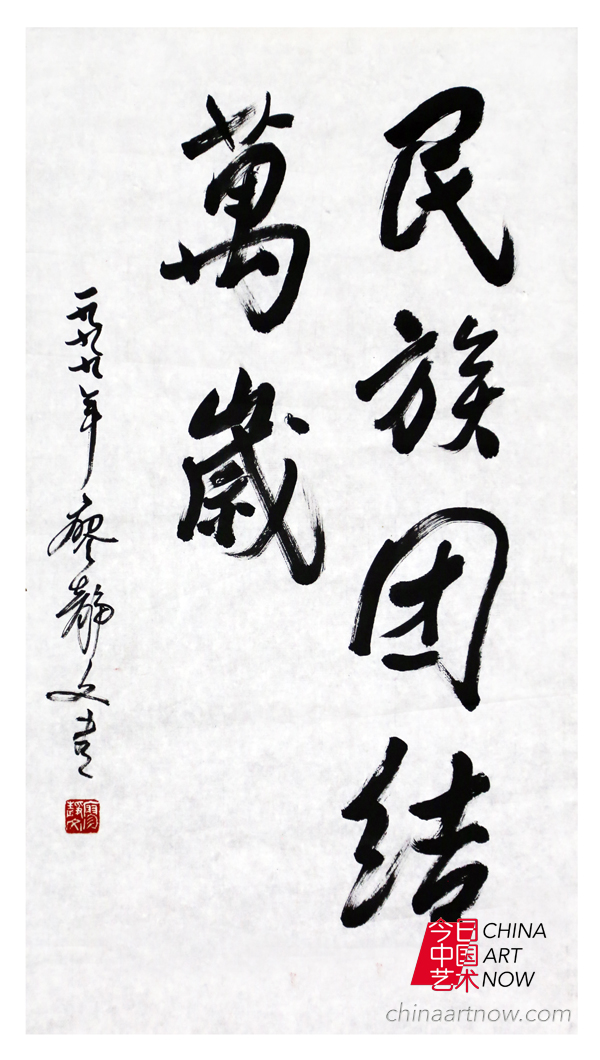 民族团结
萬歲
一九九九年廖静文书
廖靜文
今日
中国
艺术
CHINA
ART
NOW
chinaartnow.com